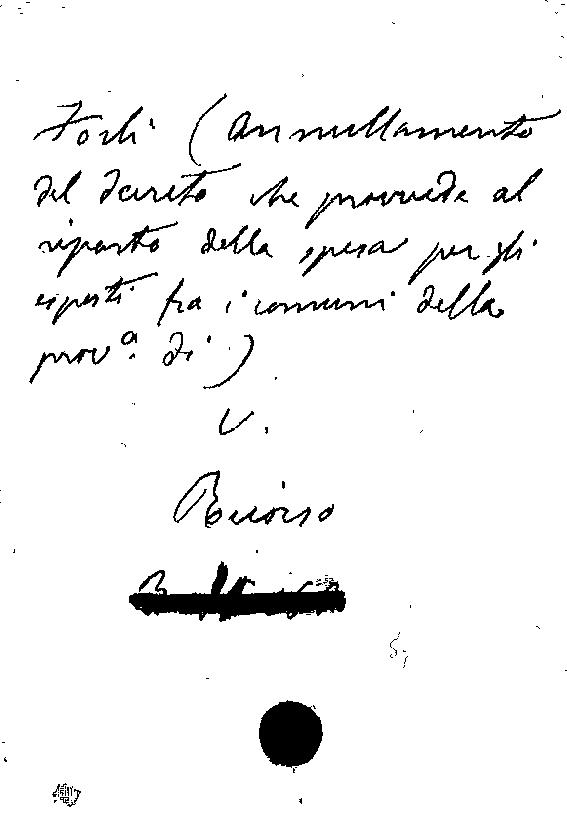 Forlì (Annullamento
del decreto che provvede al
riparto della spesa per gli
esposti fra i comuni della
provª. di)
V.
Ricorso